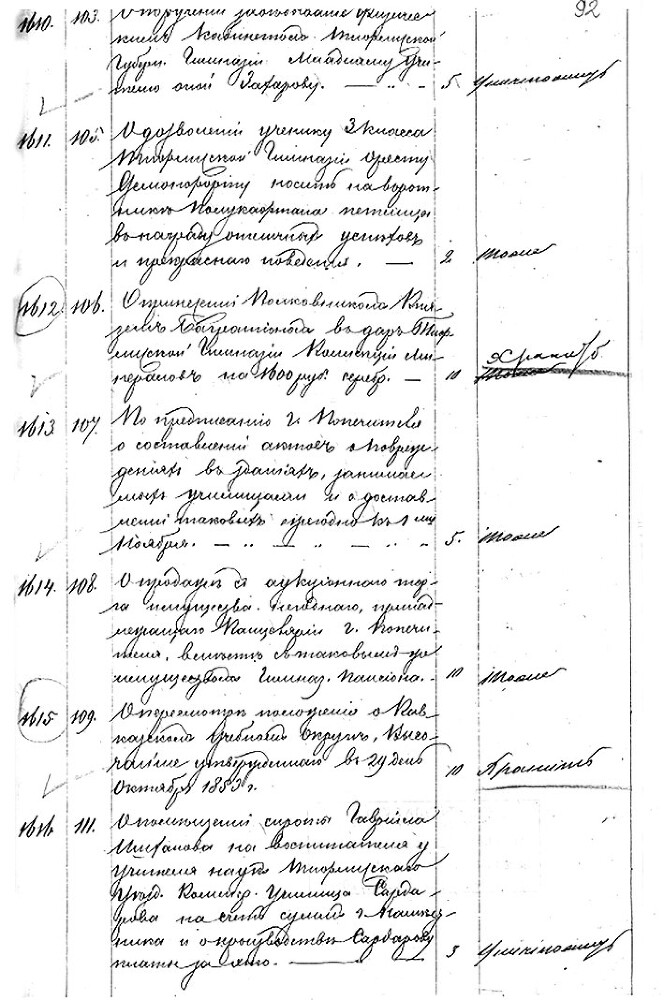 92
1610. 103. О поручении заведывание физичес-
кимъ Кабинетомъ Тифлисской
Губерн. Гимназіи Младшему Учи-
телю оной Захарову. — 5 Уничтожить
1611. 105. О дозволеніи ученику 3 класса
Тифлисской Гимназіи Оресту
носить на ворот-
никѣ Полукафтана петлицы
въ награду отличныхъ успѣховъ
и прекраснаго поведенія. — 2 тоже
1612. 106. О принесеніи Полковникомъ Кня-
земъ Багратіономъ въ даръ Тиф-
лисской Гимназіи Коллекціи Ми-
нераловъ на 1600 руб. серебр. — 10 Хранить
1613. 107. По предписанію г. Попечителя
о составленіи актовъ о повреж-
деніяхъ въ зданіяхъ, занимае-
мыхъ училищами и о достав-
леніи таковыхъ ежегодно къ 1 му
Ноября. — 5. тоже
1614. 108. О продажѣ съ аукціоннаго тор-
га имущества негоднаго, принад-
лежащаго Канцеляріи г. Попечи-
теля, вмѣстѣ съ таковымъ же
имуществомъ Гимназ. Пансіона. — 10 тоже
1615. 109. О пересмотрѣ положенія о Кав-
казскомъ Учебномъ Округѣ, Высо-
чайше утвержденнаго въ 29 день
Октября 1853 г. 10 Хранить
1616. 111. О помѣщеніи сироты Гавріила
на воспитаніе у
Учителя наукъ Тифлисскаго
Уѣзд. Коммер. Училища Сарда-
рова на счетъ суммъ г. Намѣст-
ника и о производствѣ Сардарову
платы за это. — 3 Уничтожить